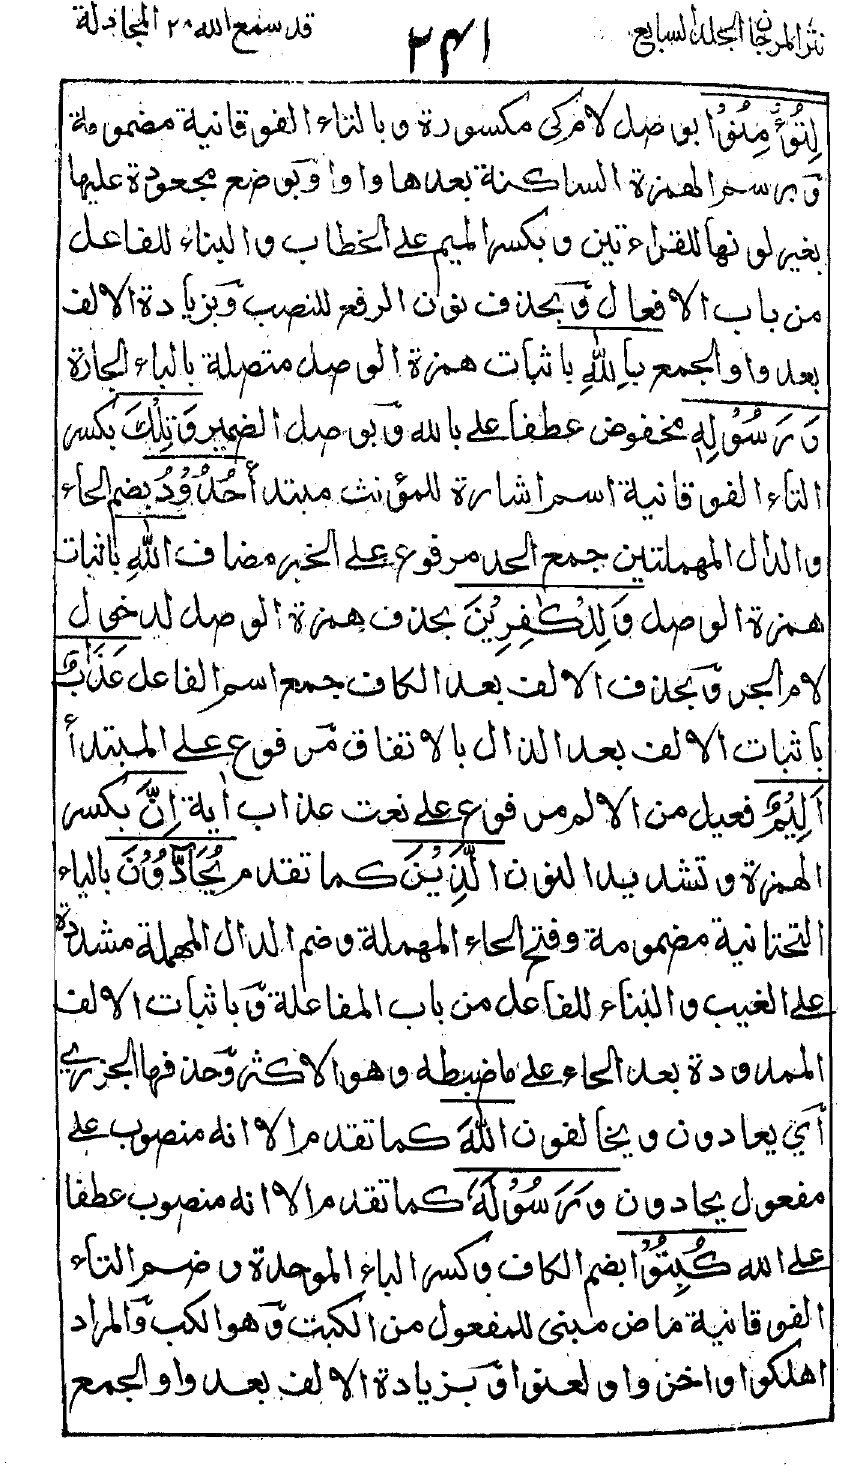 نثر المرجان الجلد السابع
٢٤١
قد سمع الله ٢٨ المجادلة
لِتُؤْمِنُوْا بوصل لام كي مكسورة وبالتاء الفوقانية مضمومة
وَبرسم الهمزة الساكنة بعدها واوا وَبوضع مجعودة عليها
بغير لونها للقراءتين وبكسر الميم على الخطاب والبناء للفاعل
من باب الافعال وَبحذف نون الرفع للنصب وَبزيادة الالف
بعد واو الجمع بِاللّٰهِ باثبات همزة الوصل متصلة بالباء الجارة
وَرَسُوْلِهٖ مخفوض عطفا على بالله وَبوصل الضمير وَتِلْكَ بكسر
التاء الفوقانية اسم اشارة للمؤنث مبتدأ حُدُوْدُ بضم الحاء
والدال المهملتين جمع الحد مرفوع على الخبر مضاف اللّٰهِ باثبات
همزة الوصل وَلِلْكٰفِرِيْنَ بحذف همزة الوصل لدخول
لام الجر وَبحذف الالف بعد الكاف جمع اسم الفاعل عَذَابٌ
باثبات الالف بعد الذال بالاتفاق مرفوع على المبتدأ
اَلِيْمٌ فعيل من الالم مرفوع على نعت عذاب أية اِنَّ بكسر
الهمزة وتشديد النون الَّذِيْنَ كما تقدم يُحَآدُّوْنَ بالياء
التحتانية مضمومة وفتح الحاء المهملة وضم الدال المهملة مشددة
على الغيب والبناء للفاعل من باب المفاعلة وَباثبات الالف
الممدودة بعد الحاء على ما ضبطه وهو الاكثر وَحذفها الجزري
أي يعادون ويخالفون اللّٰهَ كما تقدم الا انه منصوب على
مفعول يحادون وَرَسُوْلَهٗ كما تقدم الا انه منصوب عطفا
على الله كُبِتُوْا بضم الكاف وكسر الباء الموحدة وضم التاء
الفوقانية ماض مبنى للمفعول من الكبت وَهو الكب وَالمراد
اهلكوا واخزوا ولعنوا وَبزيادة الالف بعد واو الجمع